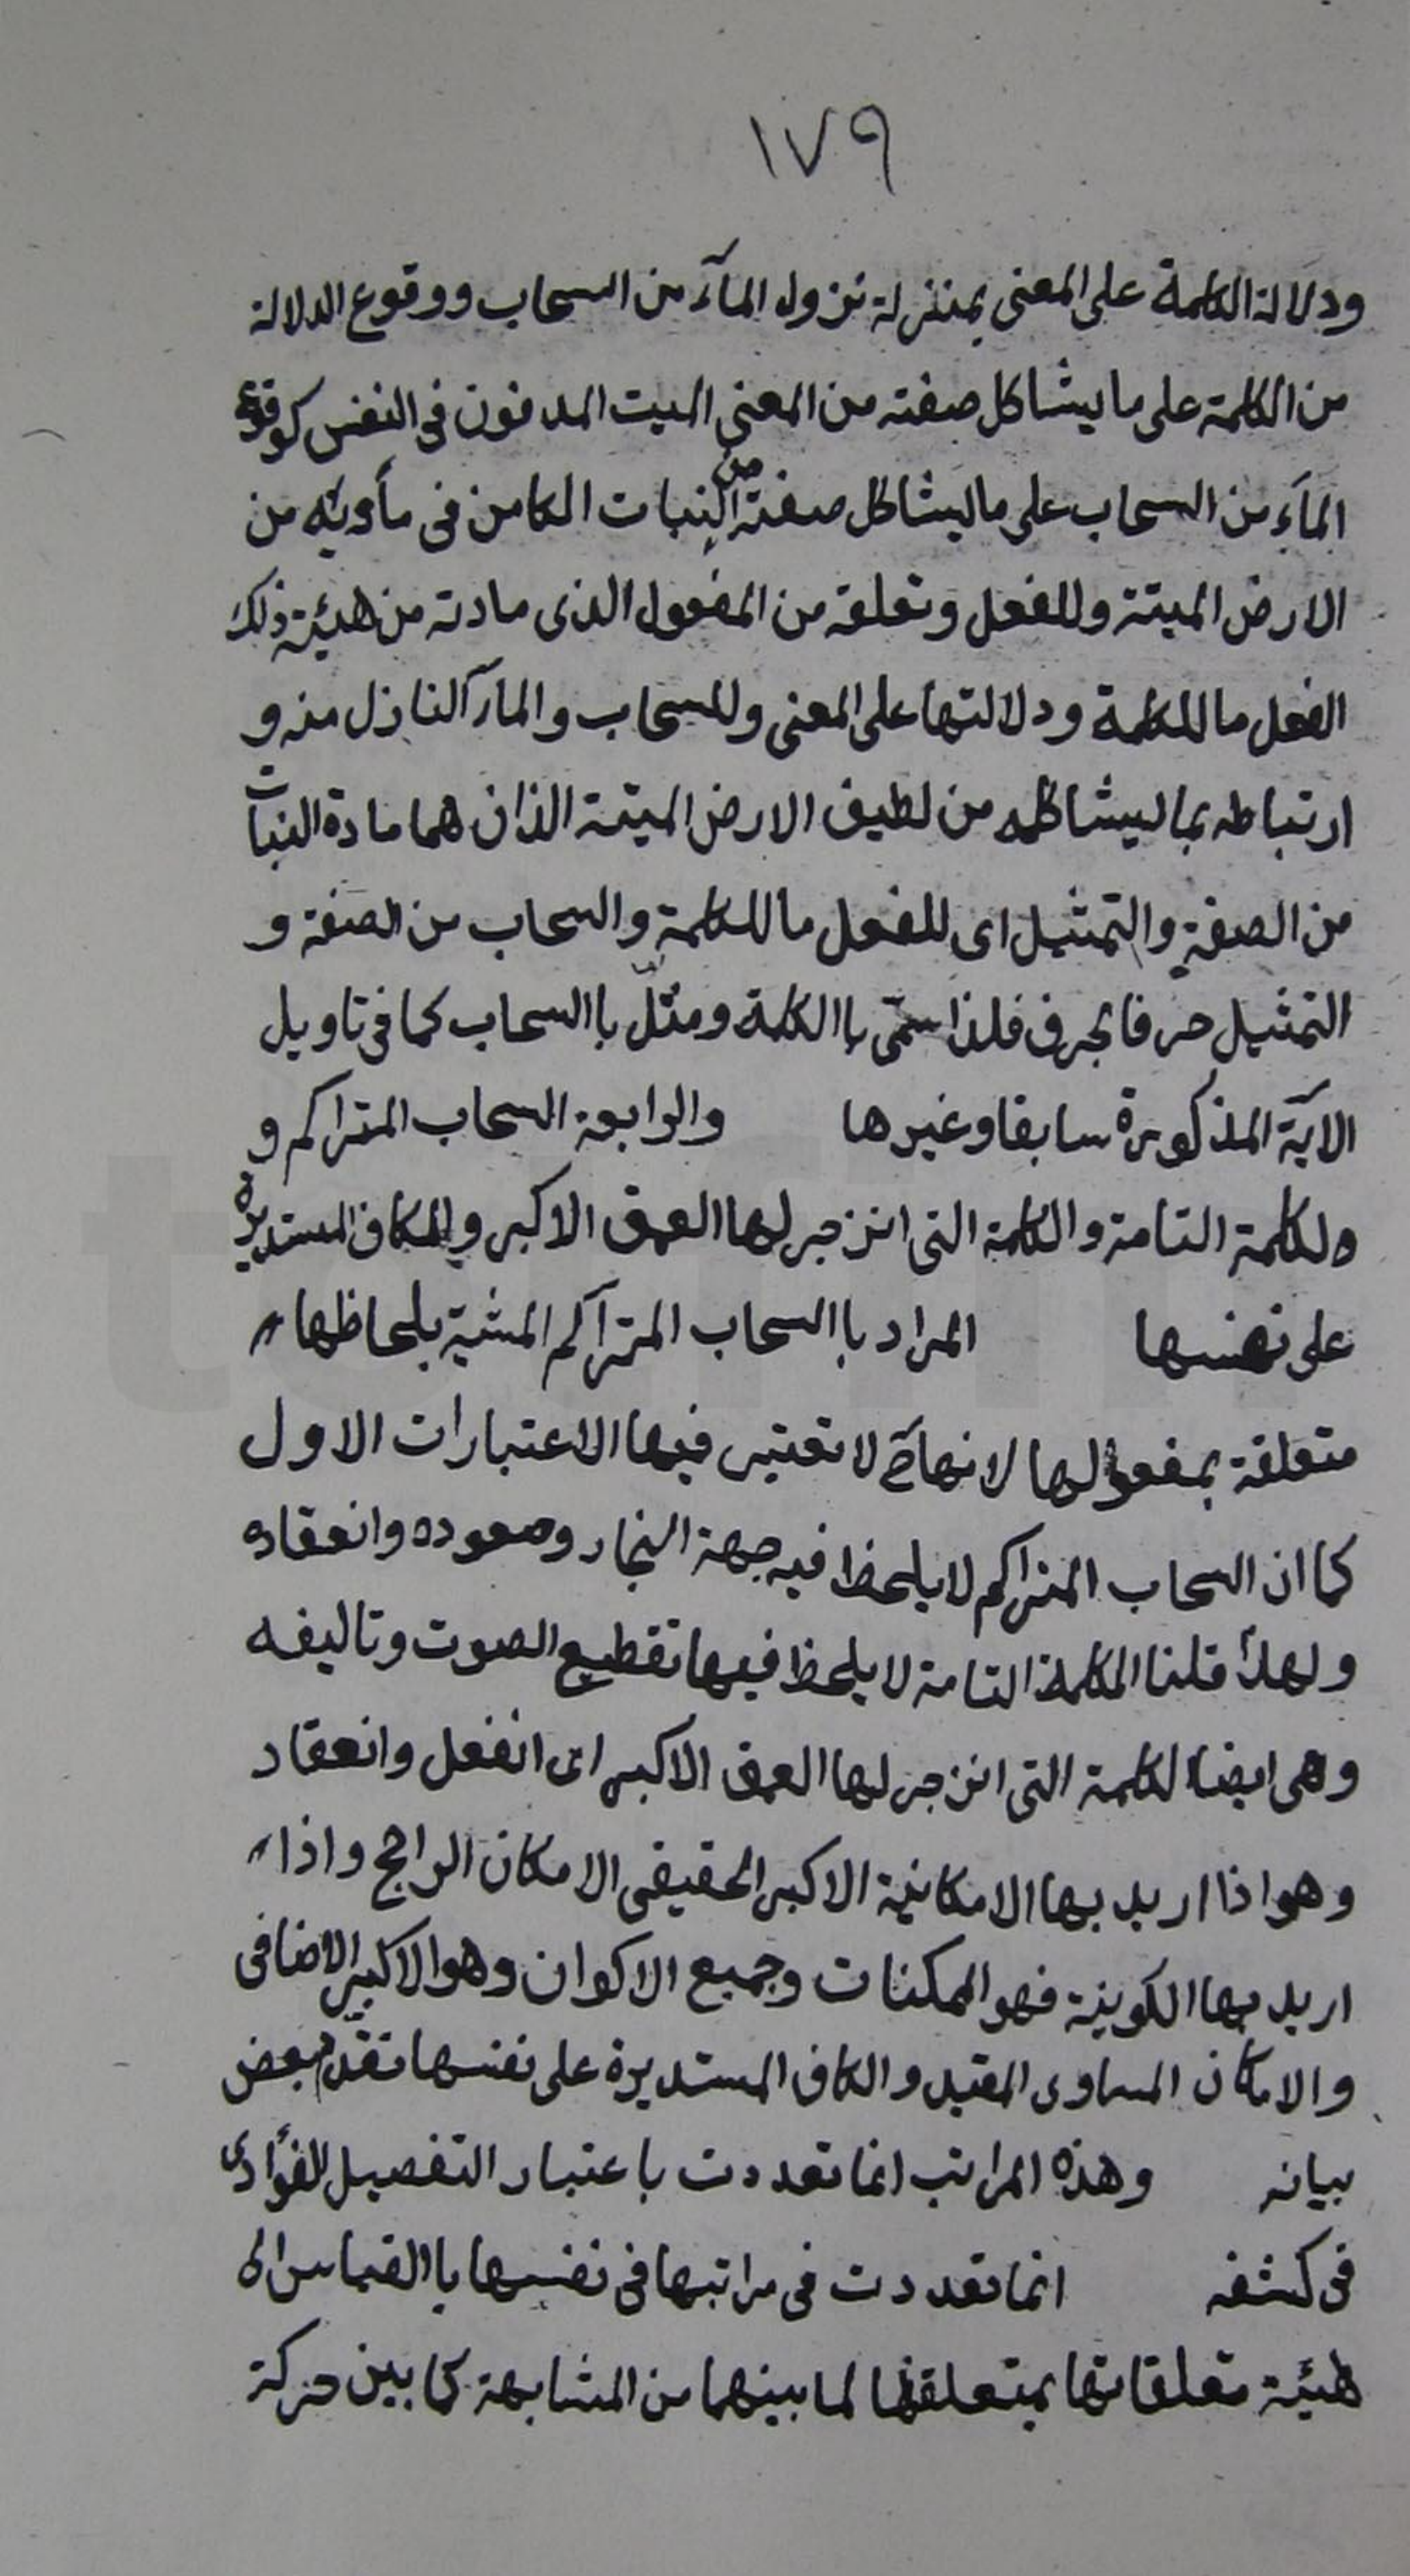 ١٧٩
ودلالة الكلمة على المعنى بمنزلة نزول المآء من السحاب ووقوع الدلالة
من الكلمة على ما يشاكل صفته من المعنى الميت المدفون فى النفس كوقوع
المآء من السحاب على ما يشاكل صفته من النبات الكامن فى مأويّه من
الارض الميتة وللفعل وتعلقه من المفعول الذى مادته من هيئة ذلك
الفعل ما للكلمة ودلالتها على المعنى وللسحاب والمآء النازل منه و
ارتباطه بما يشاكله من لطيف الارض الميتة الذان هما مادة النبات
من الصفة والتمثيل اى للفعل ما للكلمة والسحاب من الصفة و
التمثيل حرفا بحرف فلذا سمّى باالكلمة ومثّل باالسحاب كما فى تاويل
الآية المذكورة سابقا وغيرها والرابعة السحاب المتراكم و
ولكلمة التامة والكلمة التى انزجر لها العمق الاكبر والكاف المستديرة
على نفسها المراد باالسحاب المتراكم المشية بلحاظها
متعلقة بمفعولها لانهآ ح لا تعتبر فيها الاعتبارات الاول
كما ان السحاب المتراكم لا يلحظ فيه جهة البخار وصعوده وانعقاده
ولهذا قلنا الكلمة التامة لا يلحظ فيها تقطيع الصوت وتاليفه
وهى ايضا لكلمة التى انزجر لها العمق الاكبر اى انفعل وانعقاد
وهو اذا اريد بها الامكانية الاكبر الحقيقى الامكان الراجح واذا
اريد بها الكونية فهو الممكنات وجميع الاكوان وهو الاكبر الاضافى
والامكان المساوى المقيد والكاف المستديرة على نفسها تقدّم بعض
بيانه وهذه المراتب انما تعددت باعتبار التفصيل الفؤادى
فى كشفه انما تعددت فى مراتبها فى نفسها باالقياس الى
هيئة تعلقاتها بمتعلقها لما بينهما من المشابهة كما بين حركة